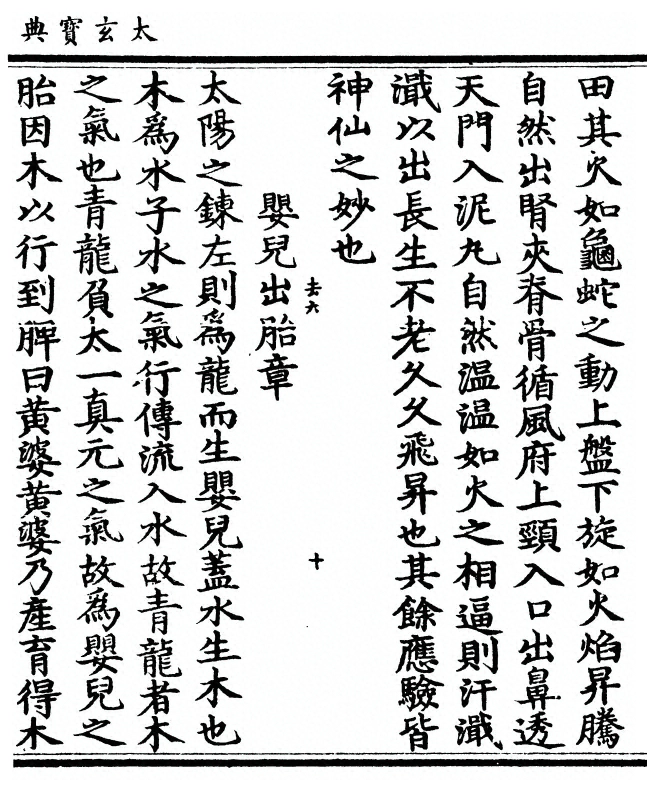 太玄寶典
田其火如龜蛇之動上盤下旋如火焰昇騰
自然出腎夾脊骨循風府上頸入口出鼻透
天門入泥丸自然温温如火之相逼則汗濈
濈以出長生不老久久飛昇也其餘應驗皆
神仙之妙也
去六
十
嬰兒出胎章
太陽之鍊左則爲龍而生嬰兒蓋水生木也
木爲水子水之氣行傳流入水故青龍者木
之氣也青龍負太一真元之氣故爲嬰兒之
胎因木以行到脾曰黄婆黄婆乃產育得木